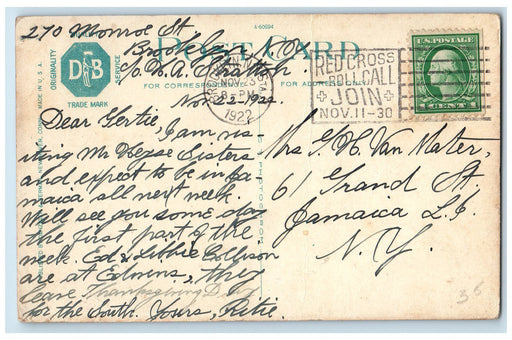 270 Monroe St
Brooklyn, N.Y.
c/o W. A. Strattoy.
A-60694
POST CARD
FOR CORRESPONDENCE
FOR ADDRESS
ORIGINALITY
D B
SERVICE
TRADE MARK
MADE IN U.S.A.
NOV 23
8-PM
1922
RED CROSS
ROLL CALL
JOIN
NOV. 11-30
U.S. POSTAGE
1 CENT 1
Nov. 22 - 1922.
Dear Gertie, I am vis-
iting Mr Heyse Sisters
and expect to be in Ja-
maica all next week.
Will see you some day
the first part of the
week. Ed & Libbie
are at Edwins, they
leave Thanksgiving Day
for the South. Yours, Ritie.
Mrs G. H. Van Mater,
61 Grand St
Jamaica L.I.
N.Y.